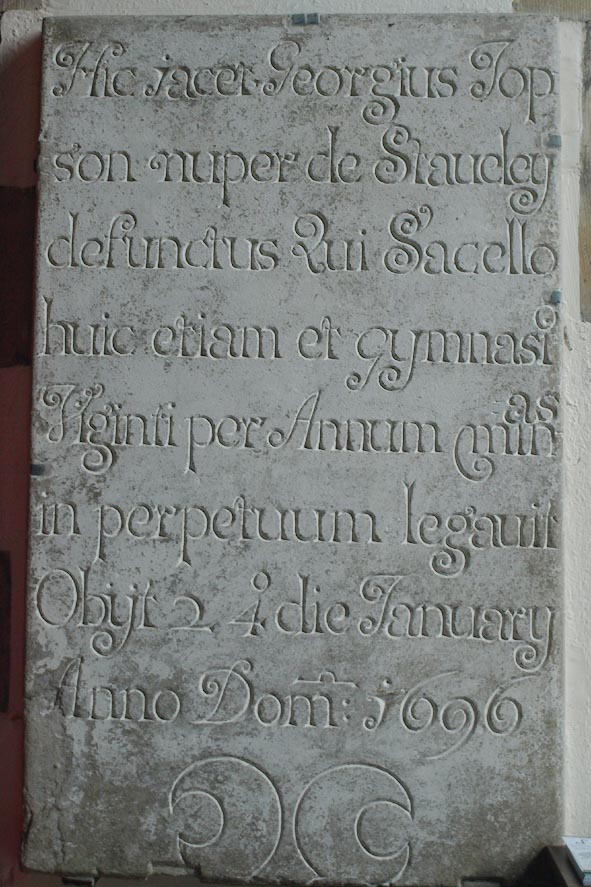 Hic jacet Georgius Top
son nuper de Staucley
defunctus Qui Sacello
huic etiam et gymnasi
Viginti per Annum min
as
in perpetuum legauit
Obijt 24º die January
Anno Dom̄: 1696